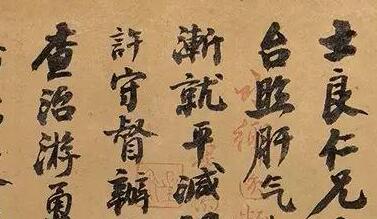 士良仁兄
台照肝气
漸就平減
許守督辦
查治游勇